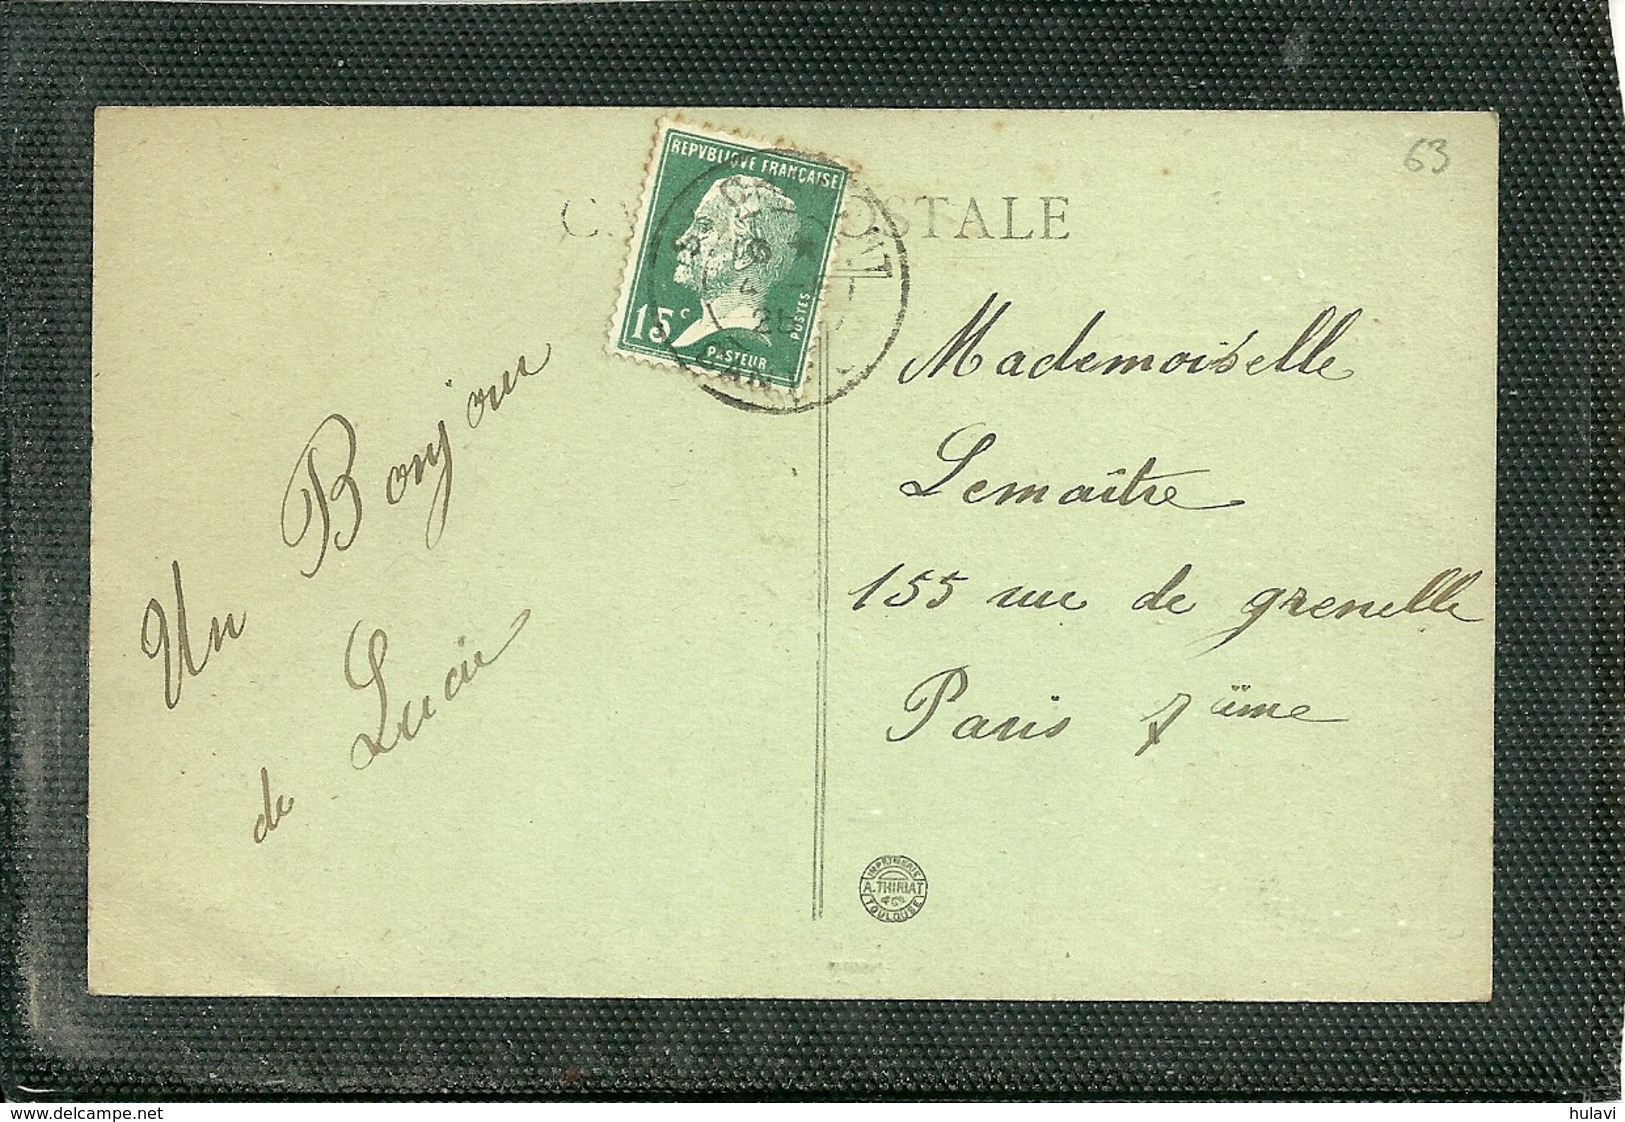 63
REPVBLIQVE FRANÇAISE
15c
PASTEUR
POSTES
POSTALE
Un Bonjour
de Lucie
Mademoiselle
Lemaître
155 rue de grenelle
Paris 7ème
IMPRIMERIE
A. THIRIAT
TOULOUSE
www.delcampe.net
hulavi